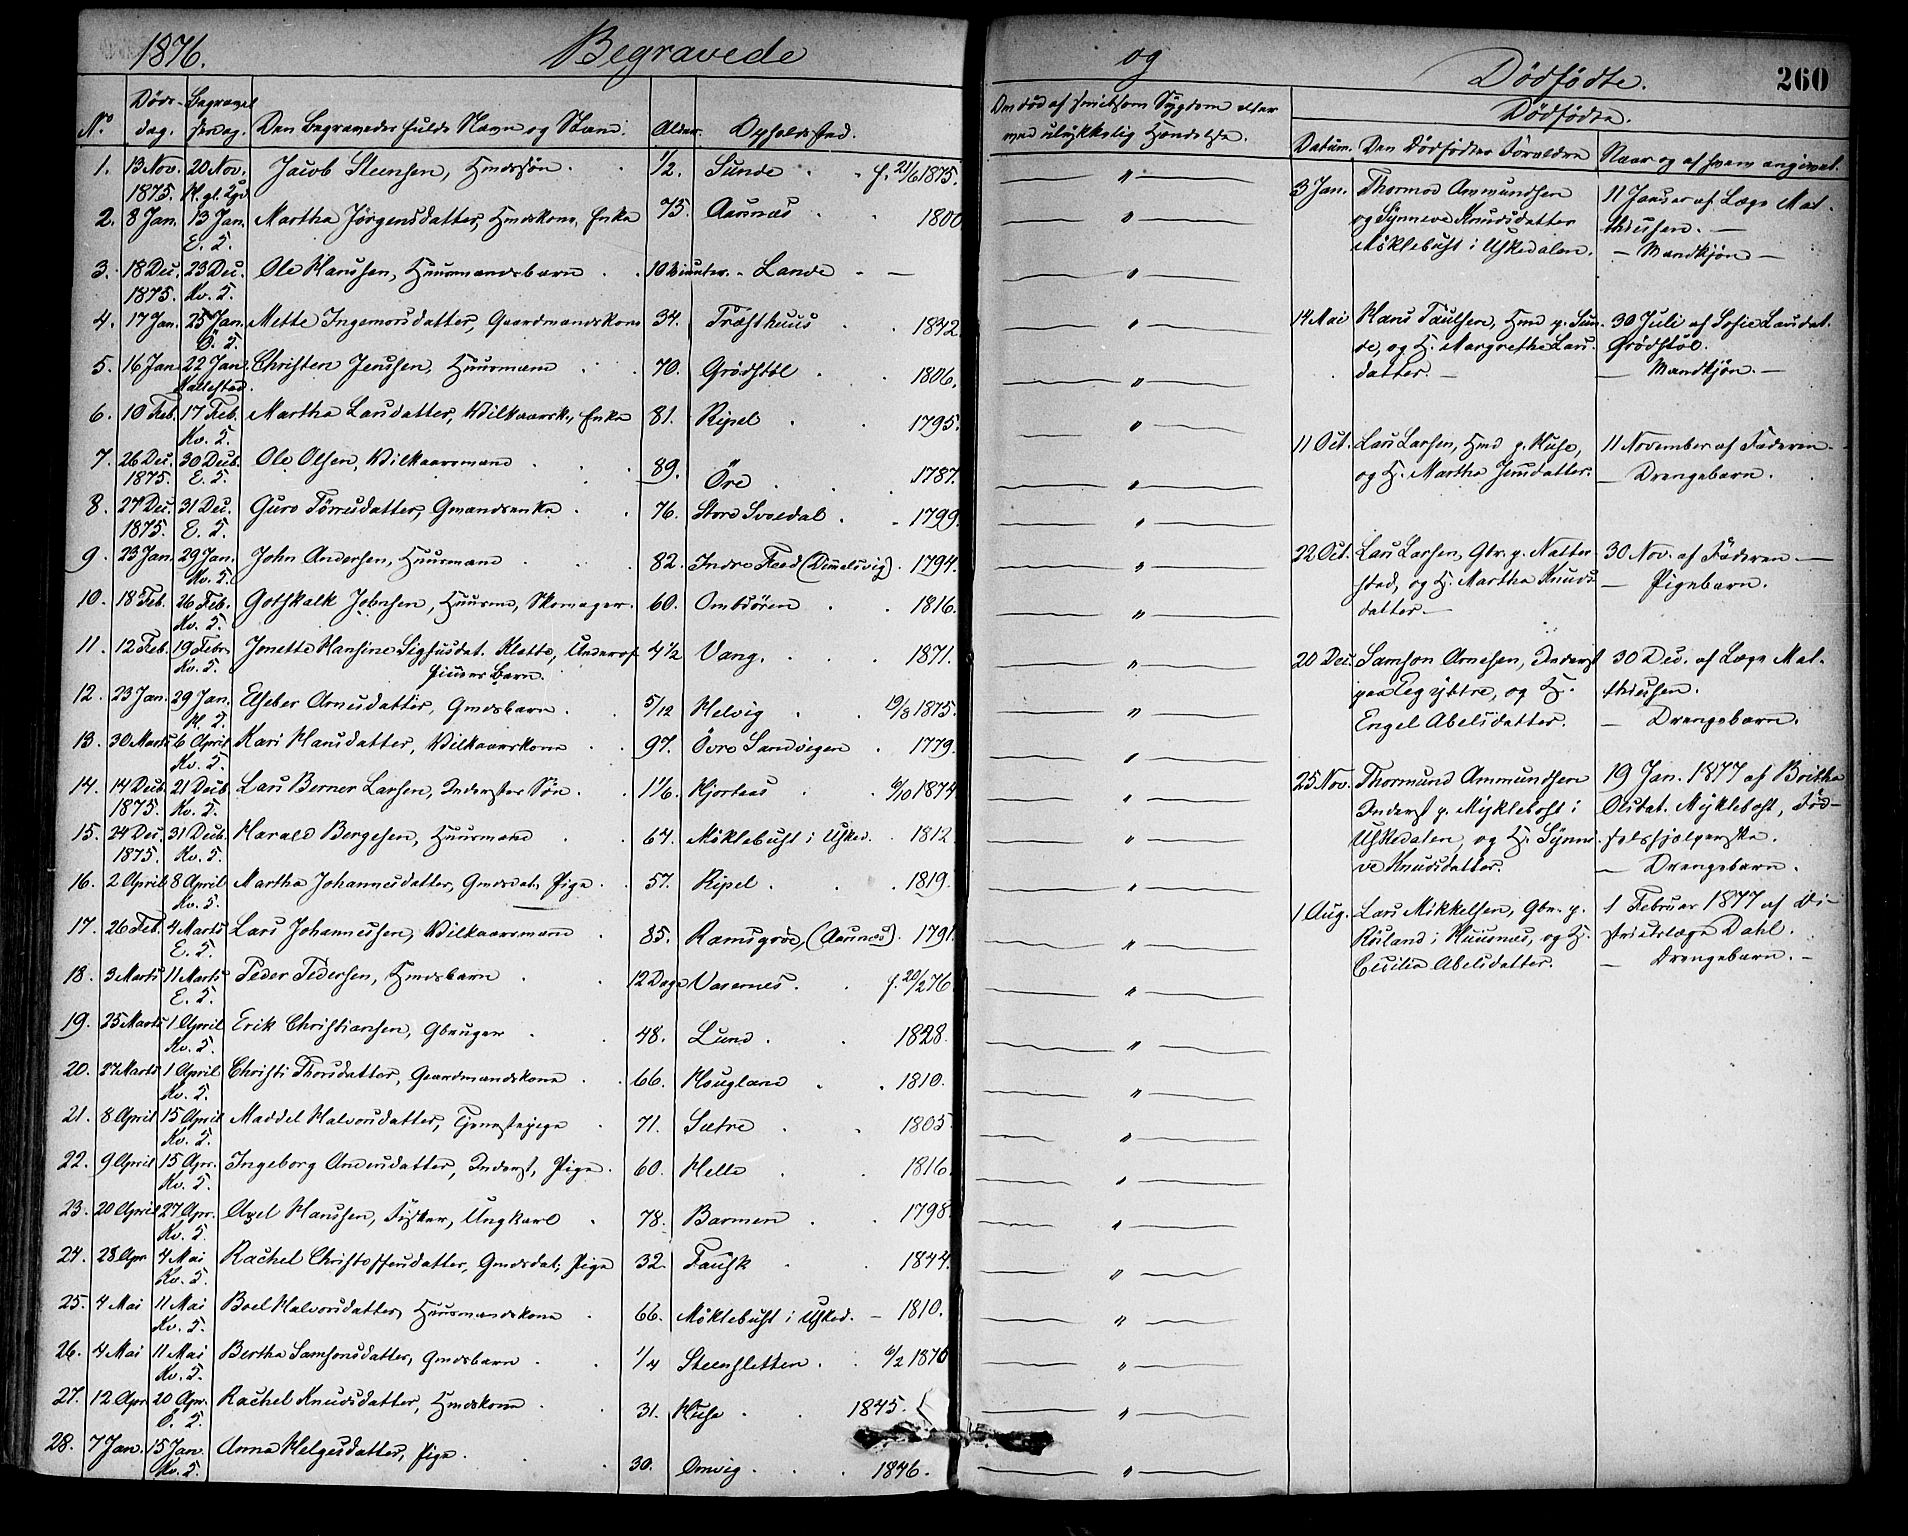 1876. Begravede og Dødfødte. 260
No Døds-dag. Begravelsesdag. Den Begravedes fulde Navn og Stand. Alder. Opholdssted. Om død af smitsom Sygdom eller ved ulykkelig Hændelse. Dødfødte.
Datum. Den Dødfødtes Forældre Naar og af hvem angivet.
1. 13 Nov. 1875. 20 Nov. Jacob Steensen, Hmdssøn 1/2. Sunde f. 21/6 1875. "
2. 8 Jan. 13 Jan. Martha Jørgensdatter, Hmdskone, Enke 75. Aasnæs 1800 "
3. 18 Dec. 1875. 23 Dec. Kv. S. Ole Hanssen, Huusmandsbarn 10 Minuter. Lande — "
4. 17 Jan. 25 Jan. Mette Ingemorsdatter, Gaardmandskone 34. Træsthuus 1842 "
5. 16 Jan. 22 Jan. Christen Jenssen, Huusmand 70. Grødstøl 1806. "
6. 10 Feb. 17 Feb. Kv. S. Martha Larsdatter, Vilkaarsk., Enke 81. Ripel 1795. "
7. 26 Dec. 1875. 30 Decb. E. S. Ole Olsen, Vilkaarsmand 89. Øre 1787. "
8. 27 Dec. 1875. 31 Dec. E. S. Guro Tørrisdatter, Gmandsenke 76. Store Svoldal 1799. "
9. 23 Jan. 29 Jan. Kv. S. John Andersen, Huusmand 82. Indre Feed (Dimelsvig). 1794. "
10. 18 Feb. 26 Feb. Kv. S. Gothskalk Johnsen, Huusmd, Skomager. 60. Ombsøren 1816. "
11. 12 Feb. 19 Febr. Kv. S. Jonette Hansine Sigfusdat. Klette, Underofficiers Barn. 4 1/2 Vang. 1871. "
12. 23 Jan. 29 Jan. H. S. Elseber Arnesdatter, Gmdsbarn 5/12 Helvig 19/8 1875. "
13. 30 Marts 6 April Kv. S. Kari Hansdatter, Vilkaarskone 97. Øvre Sandvigen 1779. "
14. 14 Decb. 1875. 21 Decb. Kv. S. Lars Berner Larsen, Inderstes Søn 1 1/6. Hjortaas 1874 "
15. 24 Dec. 1875. 31 Decb. Kv. S. Harald Bergesen, Huusmand 64. Miklebust i Usked. 1812. "
16. 2 April 8 April Kv. S. Martha Johannesdatter, Gmdsdat., Pige 57. Ripel 1819. "
17. 26 Feb. 4 Marts E. S. Lars Johannessen, Vilkaarsmand 85. Ramsgrøe (Aasnæs). 1791. "
18. 3 Marts 11 Marts E. S. Peder Pedersen, Hmdsbarn 12 Dage Valernes. f. 20/2 76. "
19. 25 Marts 1 April Kv. S. Erik Christiansen, Gbruger 48. Lund. 1828. "
20. 27 Marts 1 April Kv. S. Christi Thorsdatter, Gaardmandskone 66. Hougland 1810. "
21. 8 April 15 April Kv. S. Maddel Halvorsdatter, Tjenestepige 71. Sætre 1805. "
22. 9 April 15 Apr. Kv. S. Ingeborg Andersdatter, Inderst, Pige 60. Helle 1816. "
23. 20 April 27 Apr. Kv. S. Axel Hanssen, Fisker, Ungkarl 78. Barmen 1798. "
24. 28 Apr 4 Mai Kv. S. Rachel Christoffersdatter, Gmdsdat., Pige 32. Fausk 1844. "
25. 4 Mai 11 Mai Kv. S. Boel Halvorsdatter, Huusmandskone 66. Miklebust i Usked. 1810. "
26. 4 Mai 11 Mai Kv. S. Bertha Samsonsdatter, Gmdsbarn 1/4 Steensletten 6/2 1876 "
27. 12 Apr 20 Apr. Ø. S. Rachel Knudsdatter, Hmdskone 31. Huse 1845. "
28. 7 Jan. 15 Jan. Kv. S. Anna Helgesdatter, Pige 30. Omvig 1846. "
3 Jan. Thormod Ammundsen og Synneve Knudsdatter Miklebust i Uskedalen. 11 Januar af Læge Matthiesen. — Mandkjøn —
14 Mai Hans Paulsen, Hmd p. Sunde, og H. Margrethe Larsdatter. — 30 Juli af Sofie Larsdat. Grødstøl. — Mandkjøn. —
11 Oct. Lars Larsen, Hmd p. Huse, og H. Martha Jensdatter. 11 November af Faderen — Drengebarn.
22 Oct. Lars Larsen, Gbr. p. Natterstad, og H. Martha Knudsdatter — 30 Nov. af Faderen — — Pigebarn.
20 Dec. Samson Arnesen, Inderst paa Teg ybtre, og H. Engel Abelsdatter. 30 Dec. af Læge Matthiesen. — Drengebarn.
25 Nov. Thormund Ammundsen Inderst p. Myklebost i Uskedalen, og H. Synneve Knudsdatter. 19 Jan. 1877 af Britha Olsdat. Myklebost, Fødselshjælperske. — Drengebarn.
1 Aug. Lars Mikkelsen, Gbr. p. Røiland i Huusnæs, og H. Cecilia Abelsdatter. 1 Februar 1877 af Districtslæge Dahl. — Drengebarn. —